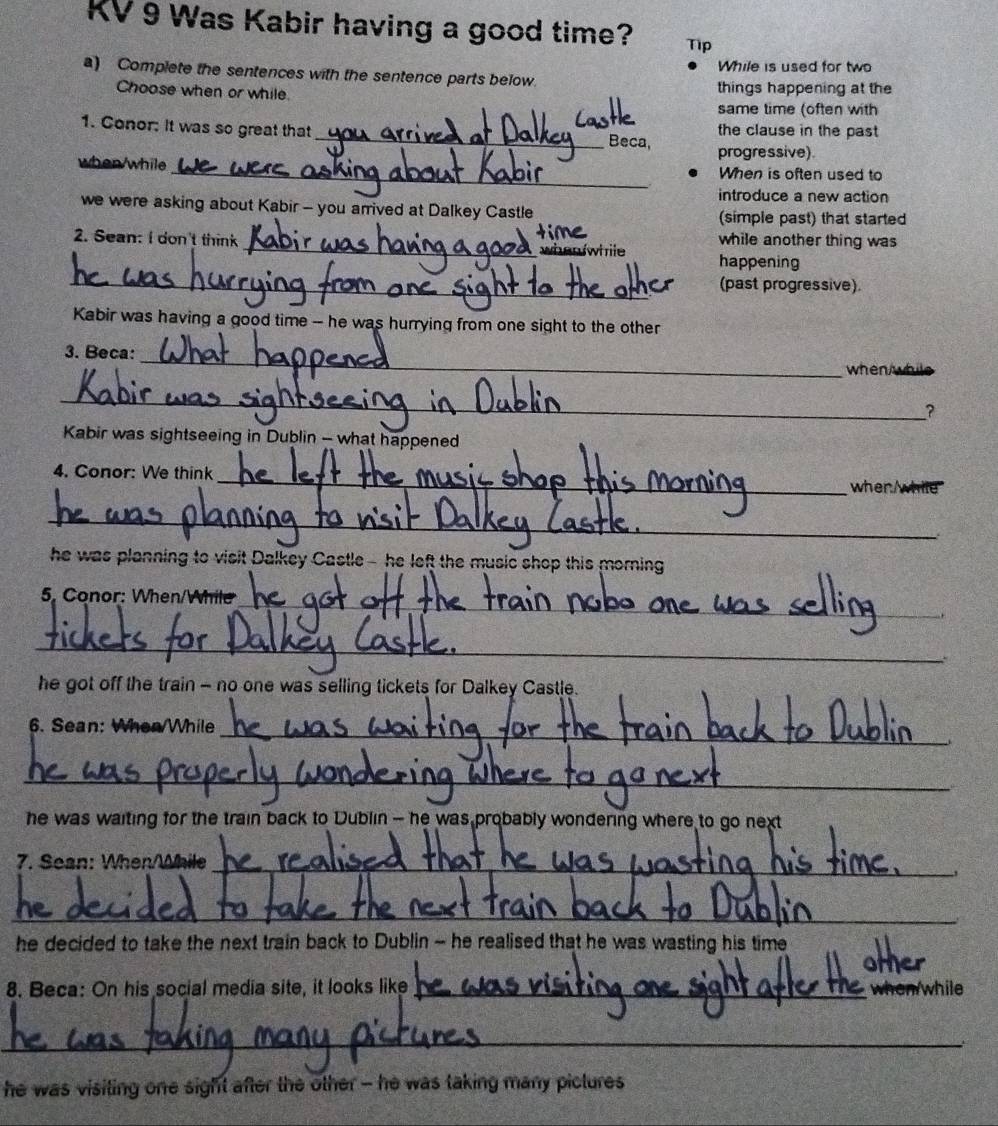 KV 9 Was Kabir having a good time?
a) Complete the sentences with the sentence parts below.
Choose when or while.
Tip
• While is used for two
things happening at the
same time (often with
the clause in the past
progressive).
• When is often used to
introduce a new action
(simple past) that started
while another thing was
happening
(past progressive).
1. Conor: It was so great that you arrived at Dalkey Castle Beca,
when/while we were asking about Kabir.
we were asking about Kabir – you arrived at Dalkey Castle
2. Sean: I don't think Kabir was having a good time when/while
he was hurrying from one sight to the other
Kabir was having a good time – he was hurrying from one sight to the other
3. Beca: What happened when/while
Kabir was sightseeing in Dublin ?
Kabir was sightseeing in Dublin – what happened
4. Conor: We think he left the music shop this morning when/while
he was planning to visit Dalkey Castle.
he was planning to visit Dalkey Castle – he left the music shop this morning
5. Conor: When/While he got off the train nobo one was selling,
tickets for Dalkey Castle.
he got off the train – no one was selling tickets for Dalkey Castle.
6. Sean: When/While he was waiting for the train back to Dublin,
he was properly wondering where to go next.
he was waiting for the train back to Dublin – he was probably wondering where to go next
7. Sean: When/While he realised that he was wasting his time.,
he decided to take the next train back to Dublin.
he decided to take the next train back to Dublin – he realised that he was wasting his time
8. Beca: On his social media site, it looks like he was visiting one sight after the other when/while
he was taking many pictures.
he was visiting one sight after the other – he was taking many pictures